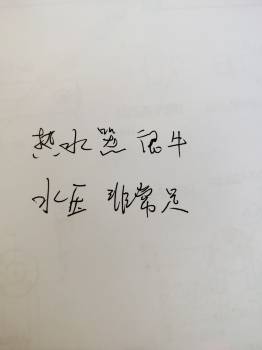 热水器很牛
水压非常足